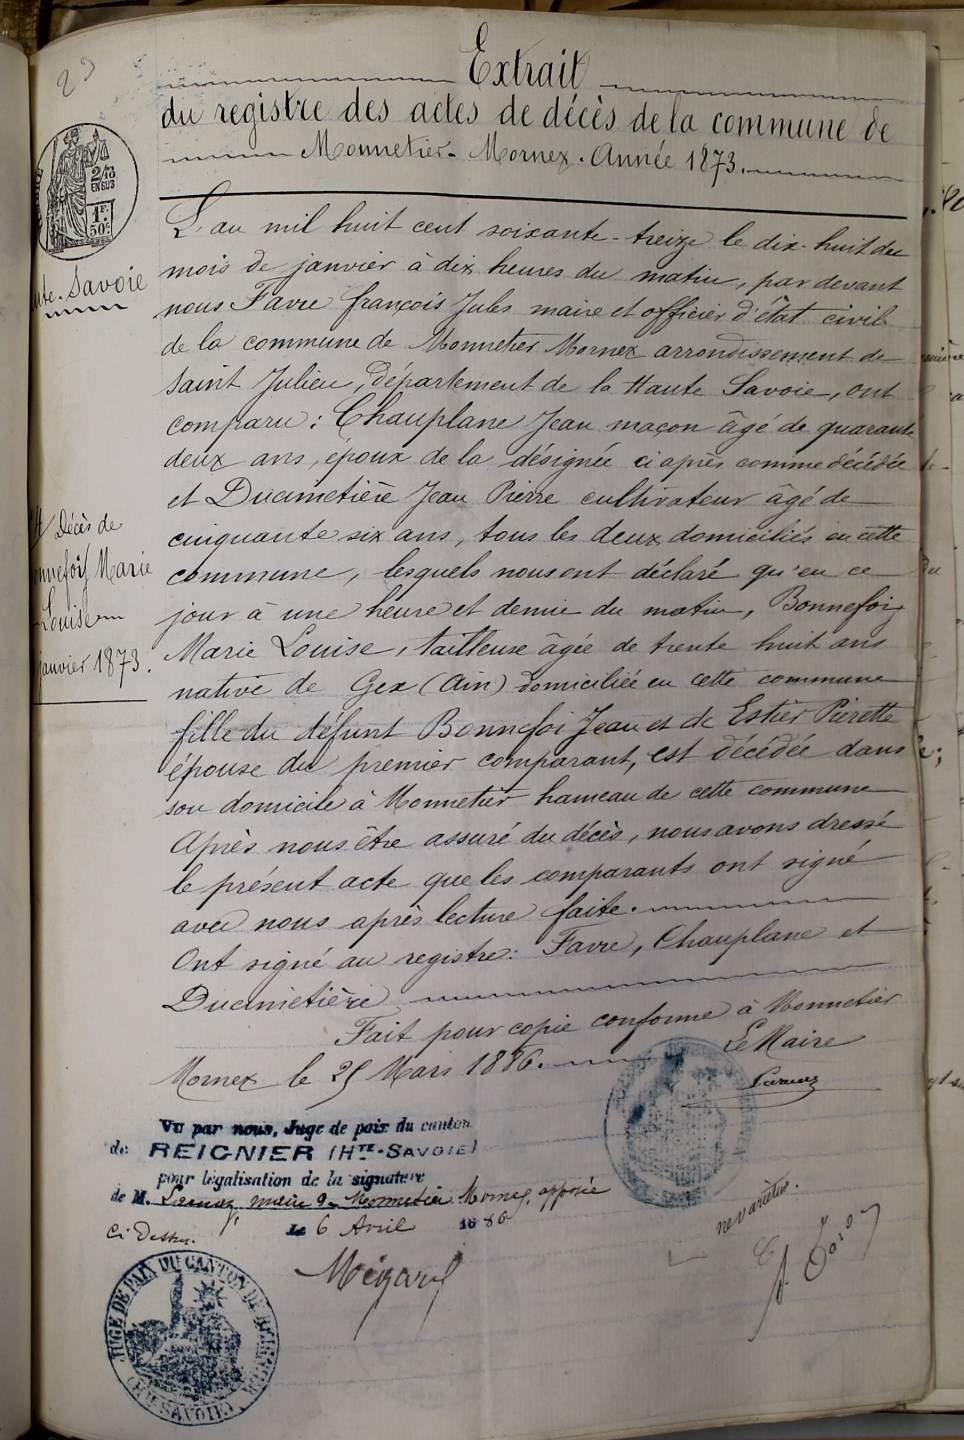 Extrait
du registre des actes de décès de la commune de
Monnetier-Mornex. Année 1873.
2/10
EN SUS
1F.
50c
Savoie
L'an mil huit cent soixante-treize le dix-huit du
mois de janvier à dix heures du matin, par devant
nous Favre françois Jules maire et officier d'état civil
de la commune de Monnetier Mornex arrondissement de
Saint Julien, département de la Haute Savoie, ont
comparu : Chauplane Jean maçon âgé de quarante
deux ans, époux de la désignée ci après comme décédée
et Ducimetière Jean Pierre cultivateur âgé de
cinquante six ans, tous les deux domiciliés en cette
commune, lesquels nous ont déclaré qu'en ce
jour à une heure et demie du matin, Bonnefoix
Marie Louise, tailleuse âgée de trente huit ans
native de Gex (Ain) domiciliée en cette commune
fille du défunt Bonnefoi Jean et de Estier Pierette
épouse du premier comparant, est décédée dans
son domicile à Monnetier hameau de cette commune
Après nous être assuré du décès, nous avons dressé
le présent acte que les comparants ont signé
avec nous après lecture faite.
Ont signé au registre : Favre, Chauplane et
Ducimetière
Décès de
Marie
Louise
janvier 1873.
Fait pour copie conforme à Monnetier
Mornex le 25 Mars 1886.
Le Maire
Vu par nous, Juge de paix du canton
de REIGNIER (HTE-SAVOIE)
pour légalisation de la signature
de M. maire de Monnetier Mornex, apposée
ci-dessus.
Le 6 Avril 1886
ne varietur.
JUGE DE PAIX DU CANTON DE REIGNIER
(HTE SAVOIE)